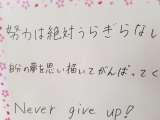 努力は絶対うらぎらない
自分の夢を思い描いてがんばってく
Never give up!